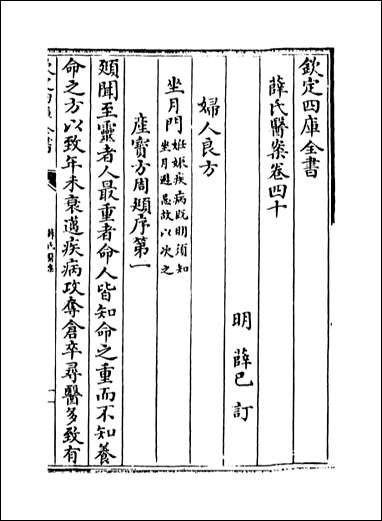 欽定四庫全書
薛氏醫案卷四十
明 薛己 訂
婦人良方
坐月門
妊娠疾病既明須知
坐月避忌故以次之
產寶方周頲序第一
頲聞至靈者人最重者命人皆知命之重而不知養
命之方以致年未衰邁疾病攻奪倉卒尋醫多致有
薛氏醫案